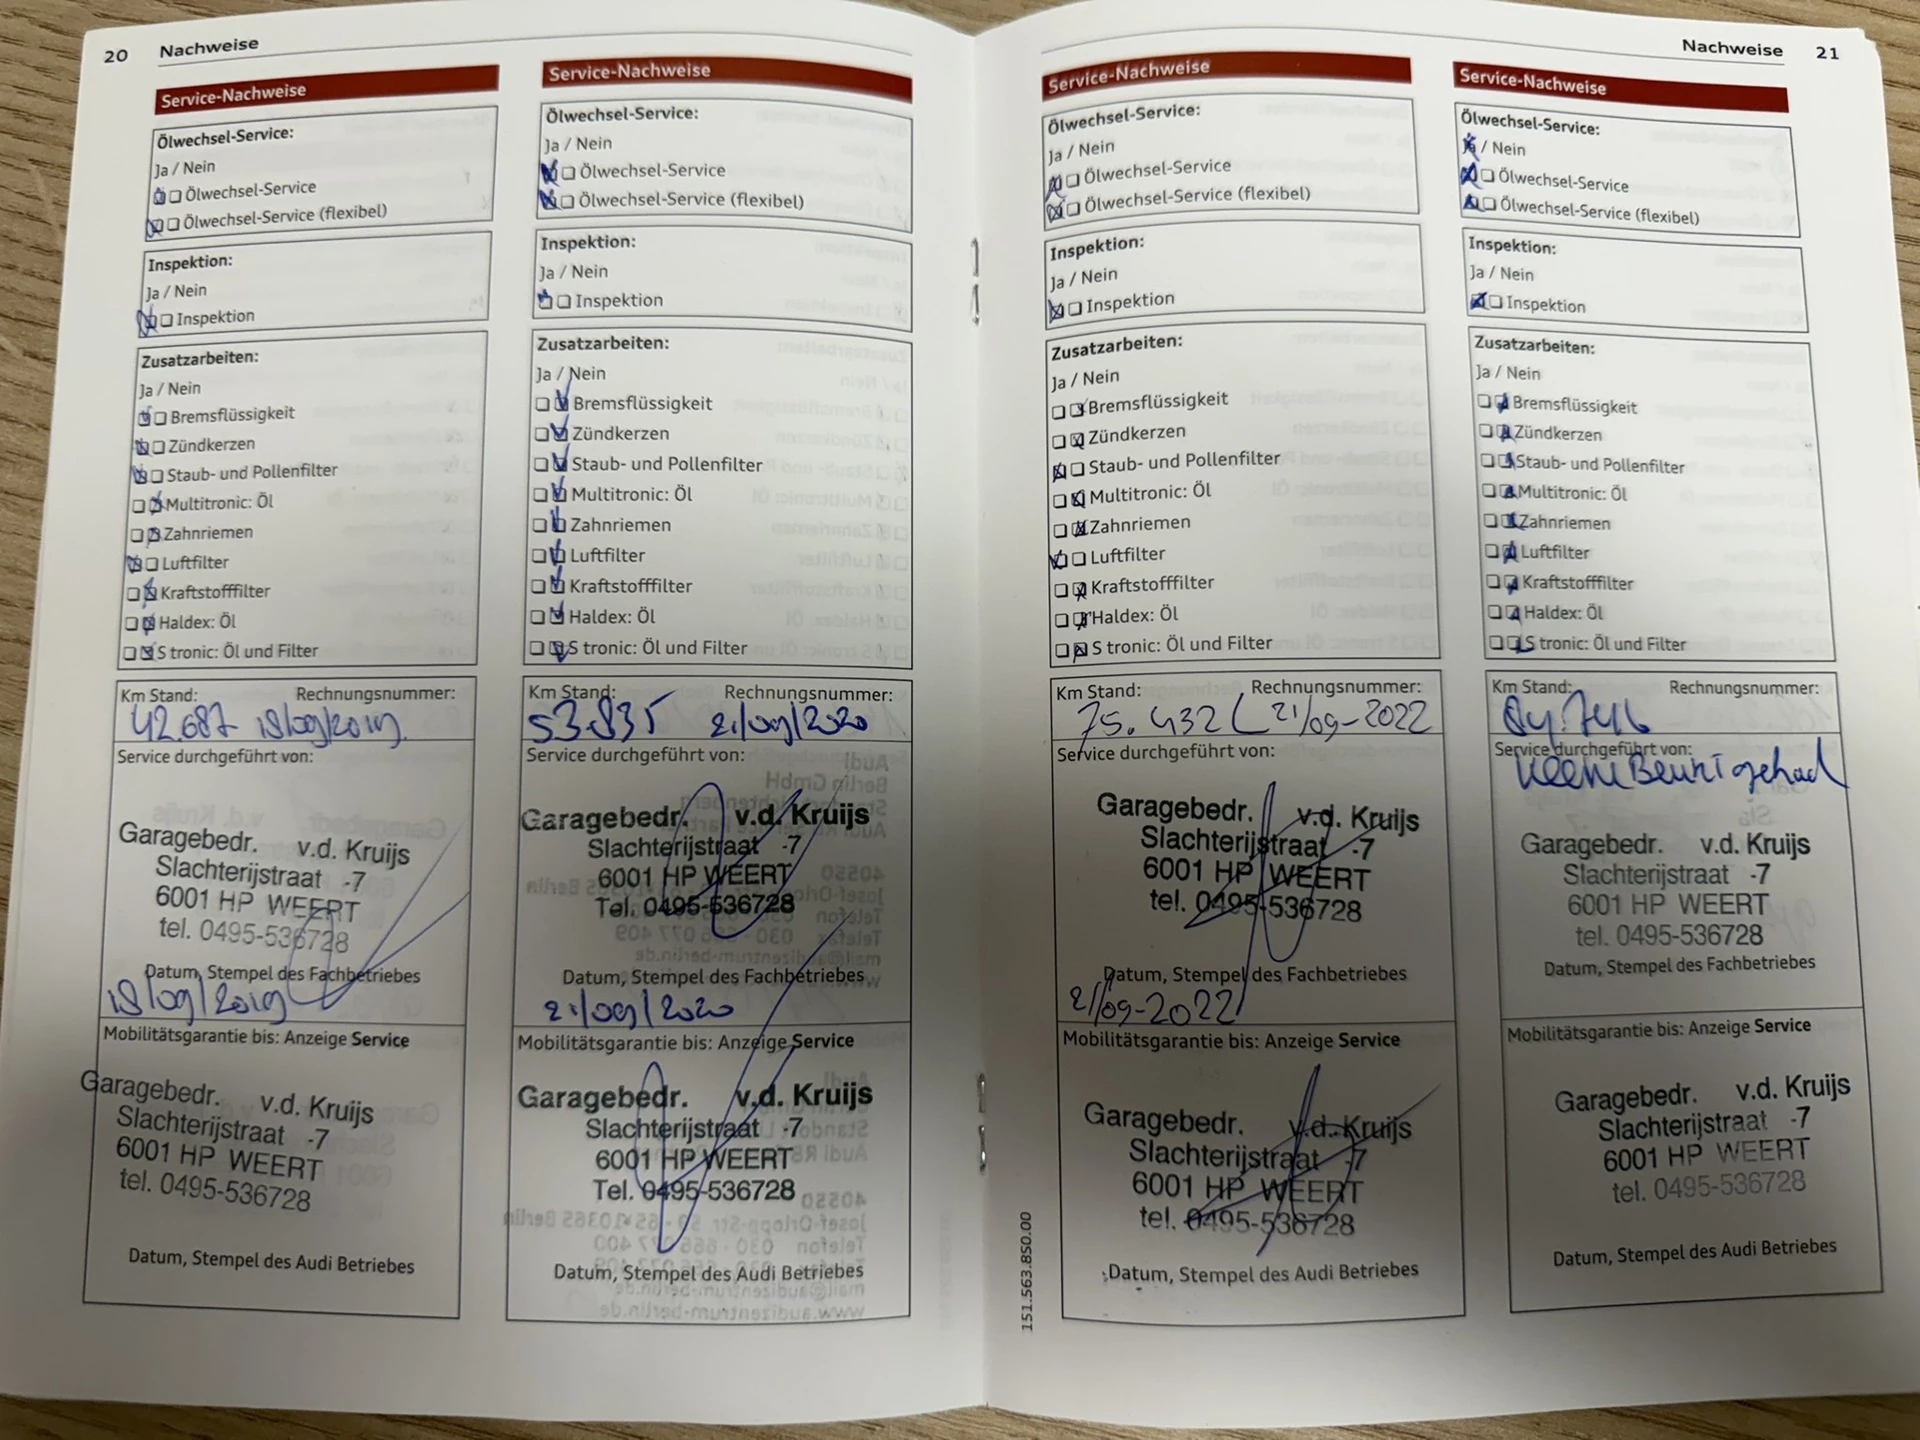 20 Nachweise
Service-Nachweise
Ölwechsel-Service:
Ja / Nein
Ölwechsel-Service
Ölwechsel-Service (flexibel)
Inspektion:
Ja / Nein
Inspektion
Zusatzarbeiten:
Ja / Nein
Bremsflüssigkeit
Zündkerzen
Staub- und Pollenfilter
Multitronic: Öl
Zahnriemen
Luftfilter
Kraftstofffilter
Haldex: Öl
S tronic: Öl und Filter
Km Stand: Rechnungsnummer:
42.687 18/09/2019.
Service durchgeführt von:
Garagebedr. v.d. Kruijs
Slachterijstraat -7
6001 HP WEERT
tel. 0495-536728
Datum, Stempel des Fachbetriebes
18/09/2019
Mobilitätsgarantie bis: Anzeige Service
Garagebedr. v.d. Kruijs
Slachterijstraat -7
6001 HP WEERT
tel. 0495-536728
Datum, Stempel des Audi Betriebes
Service-Nachweise
Ölwechsel-Service:
Ja / Nein
Ölwechsel-Service
Ölwechsel-Service (flexibel)
Inspektion:
Ja / Nein
Inspektion
Zusatzarbeiten:
Ja / Nein
Bremsflüssigkeit
Zündkerzen
Staub- und Pollenfilter
Multitronic: Öl
Zahnriemen
Luftfilter
Kraftstofffilter
Haldex: Öl
S tronic: Öl und Filter
Km Stand: Rechnungsnummer:
53.835 21/09/2020
Service durchgeführt von:
Garagebedr. v.d. Kruijs
Slachterijstraat -7
6001 HP WEERT
Tel. 0495-536728
Datum, Stempel des Fachbetriebes
21/09/2020
Mobilitätsgarantie bis: Anzeige Service
Garagebedr. v.d. Kruijs
Slachterijstraat -7
6001 HP WEERT
Tel. 0495-536728
Datum, Stempel des Audi Betriebes
Nachweise 21
Service-Nachweise
Ölwechsel-Service:
Ja / Nein
Ölwechsel-Service
Ölwechsel-Service (flexibel)
Inspektion:
Ja / Nein
Inspektion
Zusatzarbeiten:
Ja / Nein
Bremsflüssigkeit
Zündkerzen
Staub- und Pollenfilter
Multitronic: Öl
Zahnriemen
Luftfilter
Kraftstofffilter
Haldex: Öl
S tronic: Öl und Filter
Km Stand: Rechnungsnummer:
75.432 21/09-2022
Service durchgeführt von:
Garagebedr. v.d. Kruijs
Slachterijstraat -7
6001 HP WEERT
tel. 0495-536728
Datum, Stempel des Fachbetriebes
21/09-2022
Mobilitätsgarantie bis: Anzeige Service
Garagebedr. v.d. Kruijs
Slachterijstraat -7
6001 HP WEERT
tel. 0495-536728
Datum, Stempel des Audi Betriebes
151.563.850.00
Service-Nachweise
Ölwechsel-Service:
Ja / Nein
Ölwechsel-Service
Ölwechsel-Service (flexibel)
Inspektion:
Ja / Nein
Inspektion
Zusatzarbeiten:
Ja / Nein
Bremsflüssigkeit
Zündkerzen
Staub- und Pollenfilter
Multitronic: Öl
Zahnriemen
Luftfilter
Kraftstofffilter
Haldex: Öl
S tronic: Öl und Filter
Km Stand: Rechnungsnummer:
84.746
Service durchgeführt von:
gehad
Garagebedr. v.d. Kruijs
Slachterijstraat -7
6001 HP WEERT
tel. 0495-536728
Datum, Stempel des Fachbetriebes
Mobilitätsgarantie bis: Anzeige Service
Garagebedr. v.d. Kruijs
Slachterijstraat -7
6001 HP WEERT
tel. 0495-536728
Datum, Stempel des Audi Betriebes